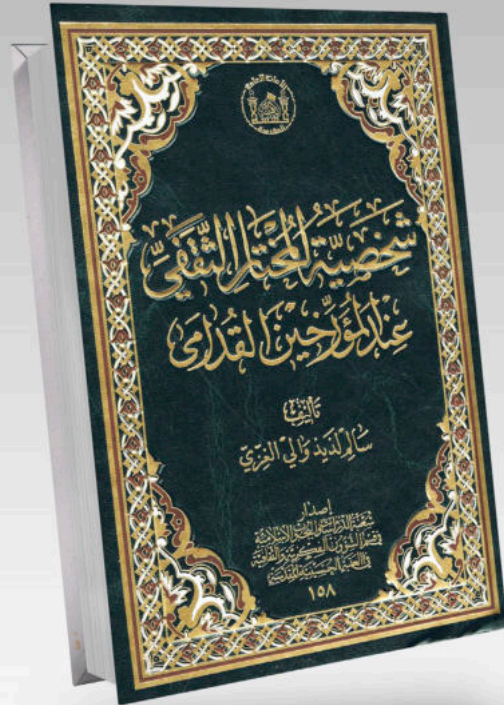 شخصية المختار الثقفي
عند المؤرخين القدامى
تأليف
سالم لذيذ والي الغزي
إصدار
شعبة الدراسات والبحوث الإسلامية
في قسم الشؤون الفكرية والثقافية
في العتبة الحسينية المقدسة
١٥٨